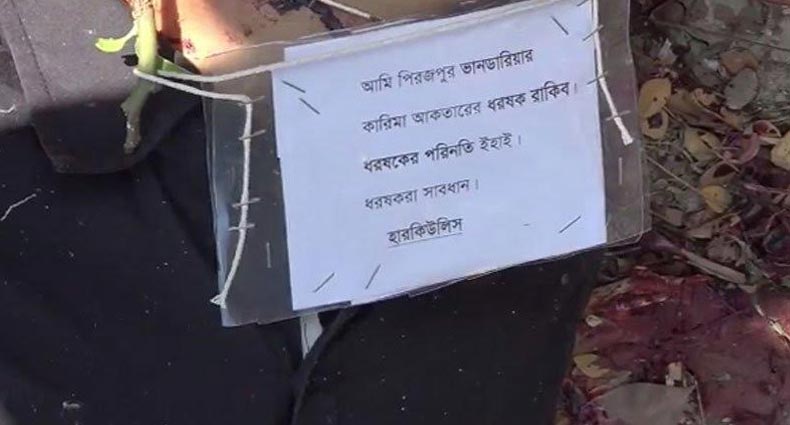 আমি পিরজপুর ভানডারিয়ার
কারিমা আকতারের ধরষক রাকিব।
ধরষকের পরিনতি ইহাই।
ধরষকরা সাবধান।
হারকিউলিস